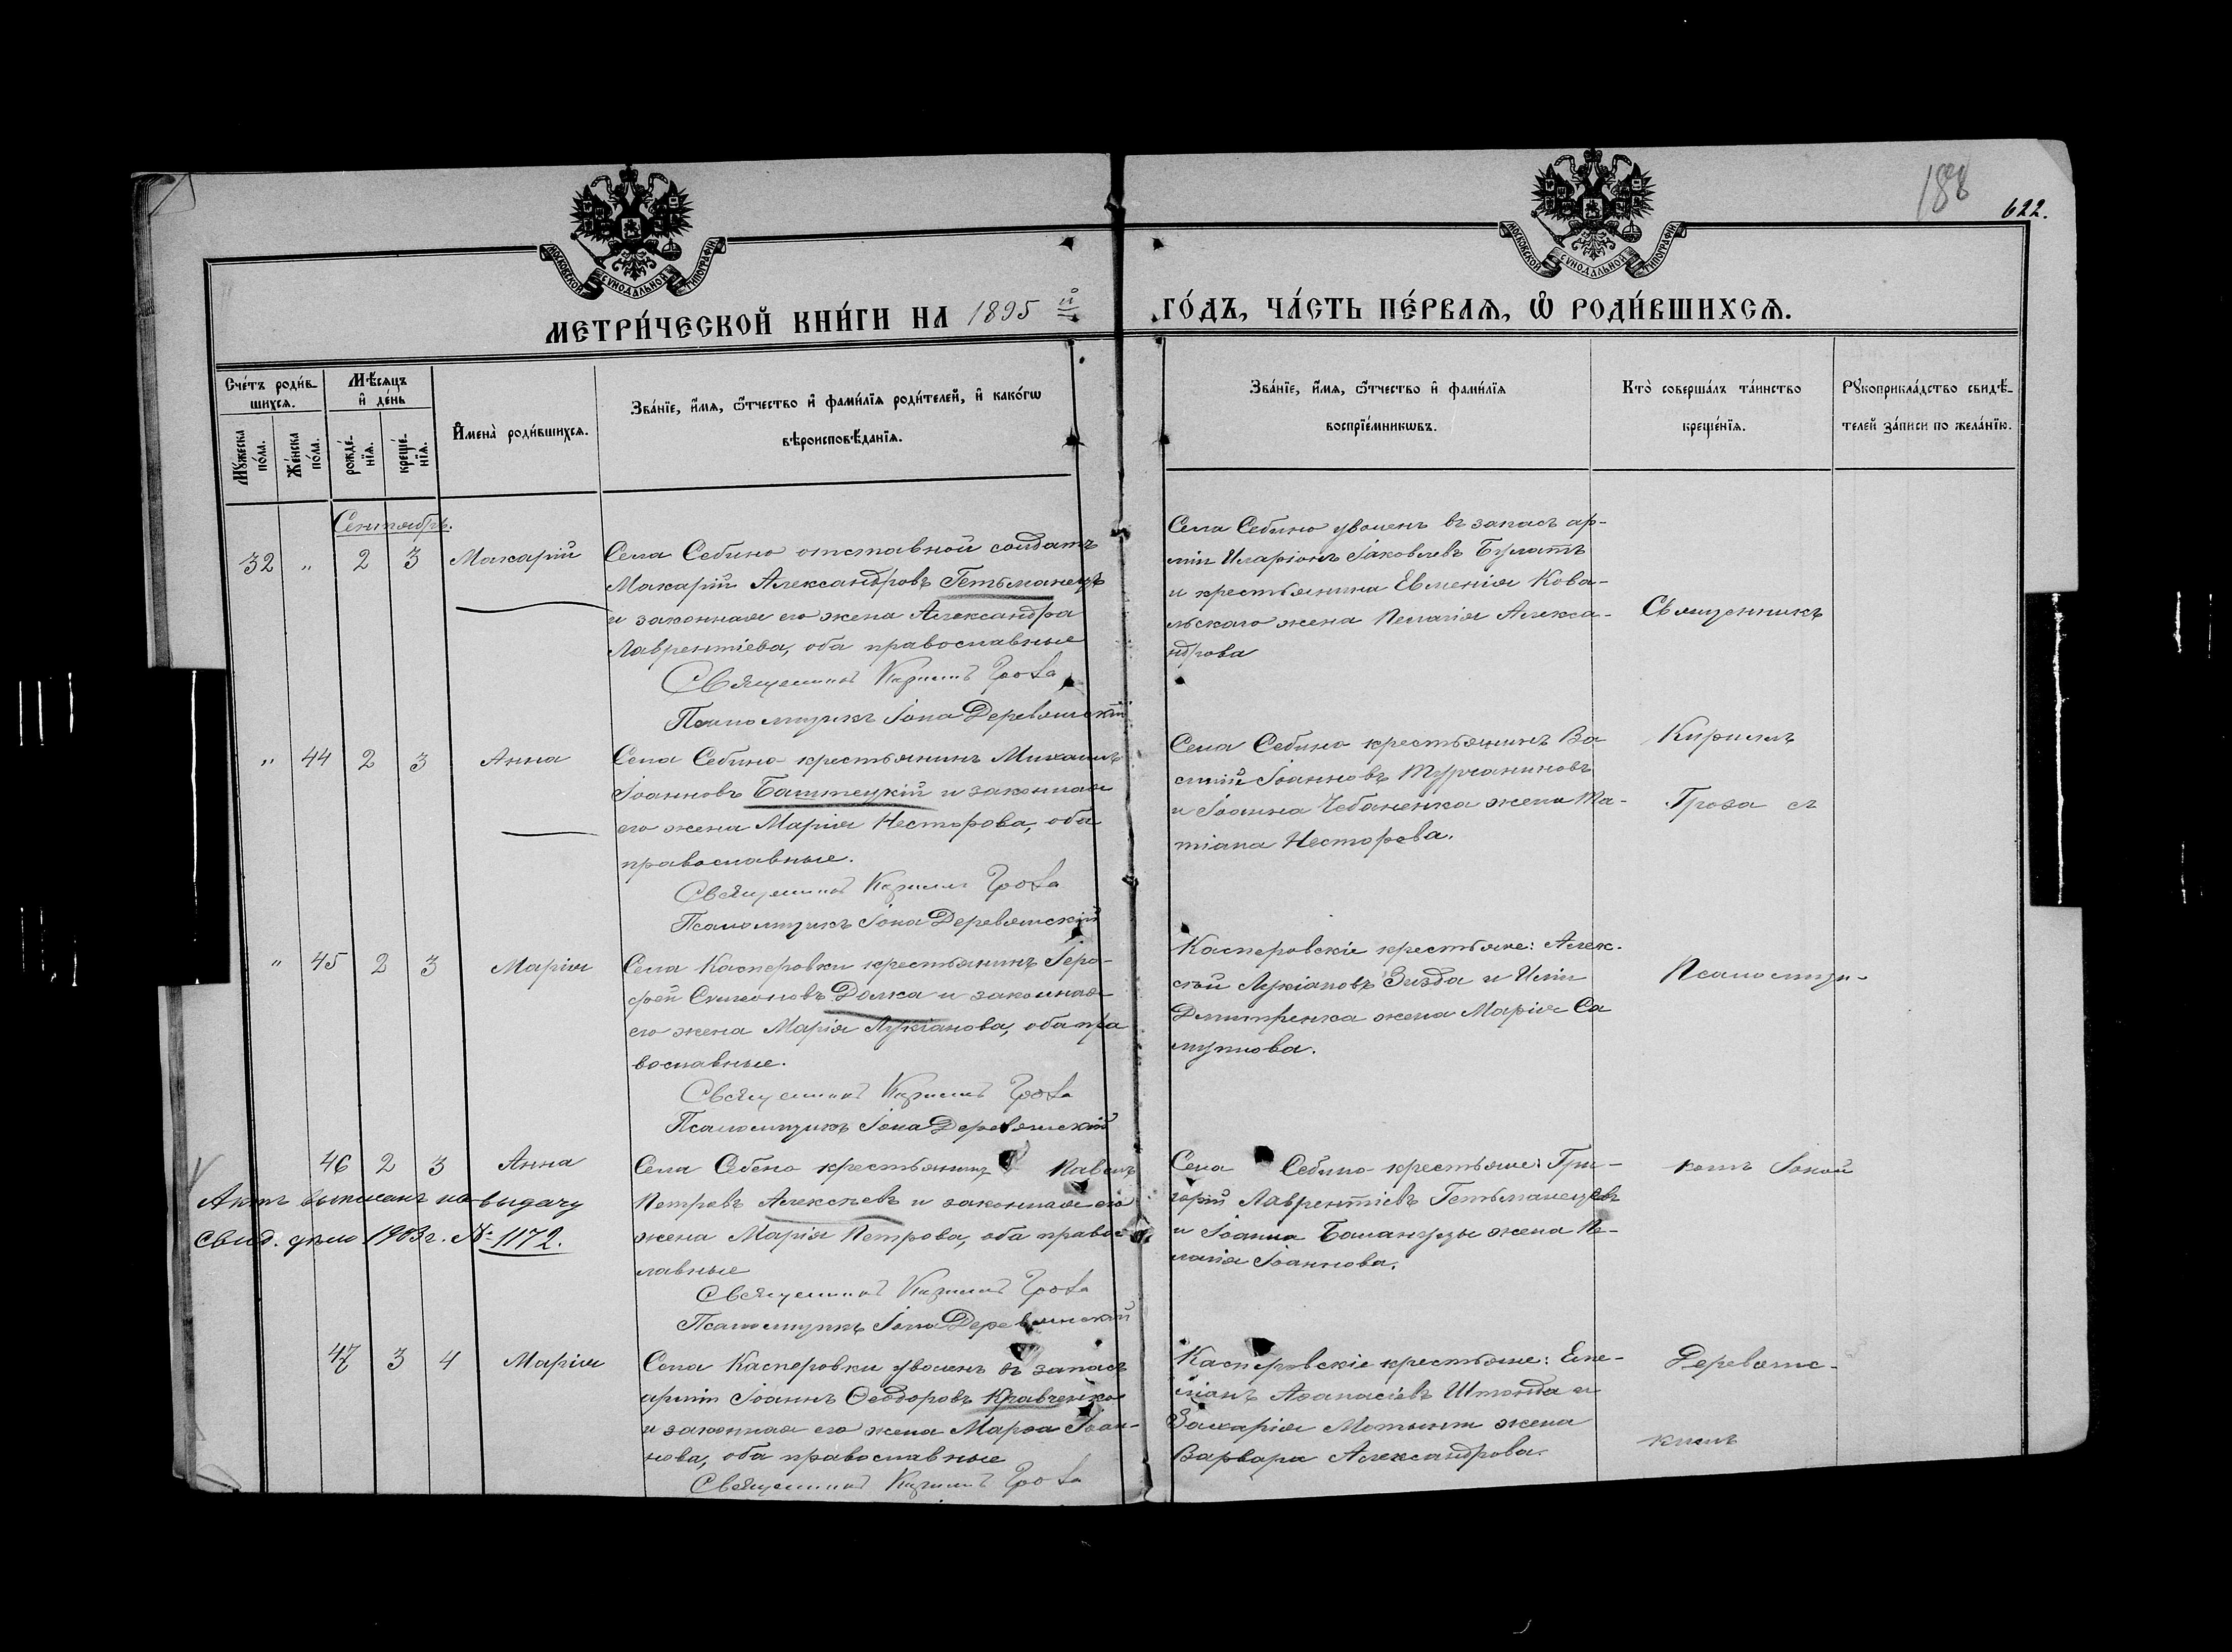 188
622.
МОСКОВСКОЙ СѴНОДАЛЬНОЙ ТИПОГРАФІИ
МОСКОВСКОЙ СѴНОДАЛЬНОЙ ТИПОГРАФІИ
МЕТРИ́ЧЕСКОЙ КНИ́ГИ НА 1895 й
ГО́ДЪ, ЧА́СТЬ ПЕ́РВАѦ, Ѽ РОДИ́ВШИХСѦ.
Сче́тъ роди́в-
шихсѧ.
Мꙋжеска по́ла.
Же́нска по́ла.
Мѣ́сѧцъ
и҆ де́нь
рожде́-
нїѧ.
креще́-
нїѧ.
И҆мена̀ роди́вшихсѧ.
Зва́нїе, и҆́мѧ, ѻ҆́тчество и҆ фами́лїѧ роди́телей, и҆ како́гѡ
вѣроисповѣ́данїѧ.
Зва́нїе, и҆́мѧ, ѻ҆́тчество и҆ фами́лїѧ
воспрїе́мникѡвъ.
Кто̀ соверша́лъ та́инство
креще́нїѧ.
Рꙋкоприкла́дство свидѣ́-
телей за́писи по жела́нїю.
Сентябрь.
32 " 2 3 Макарій
Села Себино отставной солдатъ
Макарій Александровъ Гетьманецъ
и законная его жена Александра
Лаврентіева, оба православные
Священникъ Кириллъ Гроза
Псаломщикъ Іона Деревянскій
Села Себино уволенъ въ запасъ ар-
міи Иларіонъ Іаковлевъ Булатъ
и крестьянина Евменія Кова-
льскаго жена Пелагія Алекса-
ндрова
Священникъ
" 44 2 3 Анна
Села Себино крестьянинъ Михаилъ
Іоанновъ Баштецкій и законная
его жена Марія Несторова, оба
православные.
Священникъ Кириллъ Гроза
Псаломщикъ Іона Деревянскій
Села Себино крестьянинъ Ва
силій Іоанновъ Турчаниновъ
и Іоанна Чебаненка жена Та-
тіана Несторова.
Кириллъ
Гроза съ
" 45 2 3 Марія
Села Касперовки крестьянинъ Іеро-
фей Симеоновъ Долка и законная
его жена Марія Лукіанова, оба пра
вославные.
Священникъ Кириллъ Гроза
Псаломщикъ Іона Деревянскій
Касперовскіе крестьяне: Алек-
сѣй Лукіановъ и Иліи
Дмитренка жена Марія Са
муилова.
Псаломщи-
46 2 3 Анна
Актъ выписанъ на выдачу
свид. дѣло 1903 г. № 1172.
Села Себено крестьянинъ Павелъ
Петровъ Алексѣевъ и законная его
жена Марія Петрова, оба правос
лавные
Священникъ Кириллъ Гроза
Псаломщикъ Іона Деревянскій
Села Себино крестьяне: Гри-
горій Лаврентіевъ Гетьманецъ
и Іоанна жена Пе-
лагія Іоаннова.
комъ Іоной
47 3 4 Марія
Села Касперовки уволенъ въ запасъ
арміи Іоаннъ Ѳеодоровъ Кравченко
и законная его жена Марѳа Іоан-
нова, оба православные
Священникъ Кириллъ Гроза
Касперовскіе крестьяне: Еме-
ліанъ Аѳанасіевъ Штонда и
Захарія жена
Варвара Александрова.
Деревянс-
кимъ